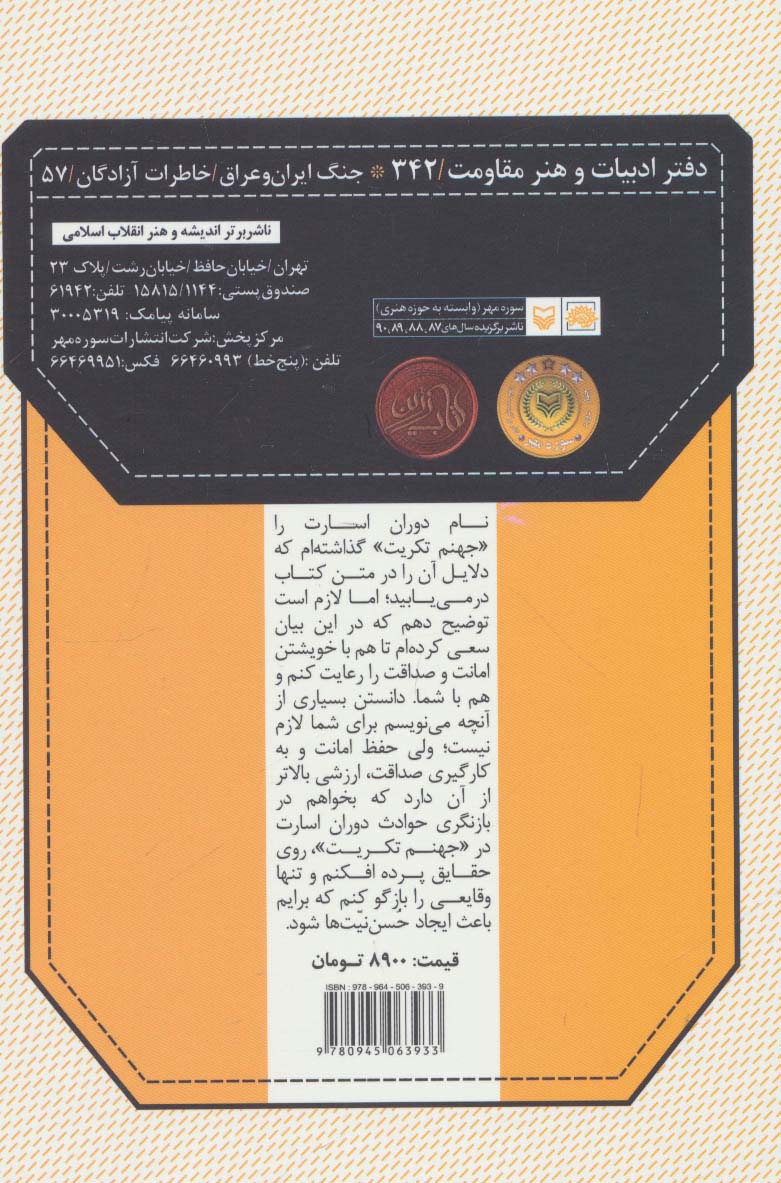 دفتر ادبیات و هنر مقاومت/۳۴۲ * جنگ ایران‌وعراق/خاطرات آزادگان/۵۷
ناشر برتر اندیشه و هنر انقلاب اسلامی
تهران/خیابان حافظ/خیابان رشت/پلاک ۲۳
صندوق پستی: ۱۵۸۱۵/۱۱۴۴ تلفن: ۶۱۹۴۲
سامانه پیامک: ۳۰۰۰۵۳۱۹
مرکز پخش: شرکت انتشارات سوره مهر
تلفن: (پنج خط) ۶۶۴۶۰۹۹۳ فکس: ۶۶۴۶۹۹۵۱
سوره مهر (وابسته به حوزه هنری)
ناشر برگزیده سال‌های ۸۷، ۸۸، ۸۹، ۹۰
سوره مهر
نام دوران اسارت را
«جهنم تکریت» گذاشته‌ام که
دلایل آن را در متن کتاب
درمی‌یابید؛ اما لازم است
توضیح دهم که در این بیان
سعی کرده‌ام تا هم با خویشتن
امانت و صداقت را رعایت کنم و
هم با شما. دانستن بسیاری از
آنچه می‌نویسم برای شما لازم
نیست؛ ولی حفظ امانت و به
کارگیری صداقت، ارزشی بالاتر
از آن دارد که بخواهم در
بازنگری حوادث دوران اسارت
در «جهنم تکریت»، روی
حقایق پرده افکنم و تنها
وقایعی را بازگو کنم که برایم
باعث ایجاد حُسن‌نیّت‌ها شود.
قیمت: ۸۹۰۰ تومان
ISBN : 978 - 964 - 506 - 393 - 9
9 780945 063933